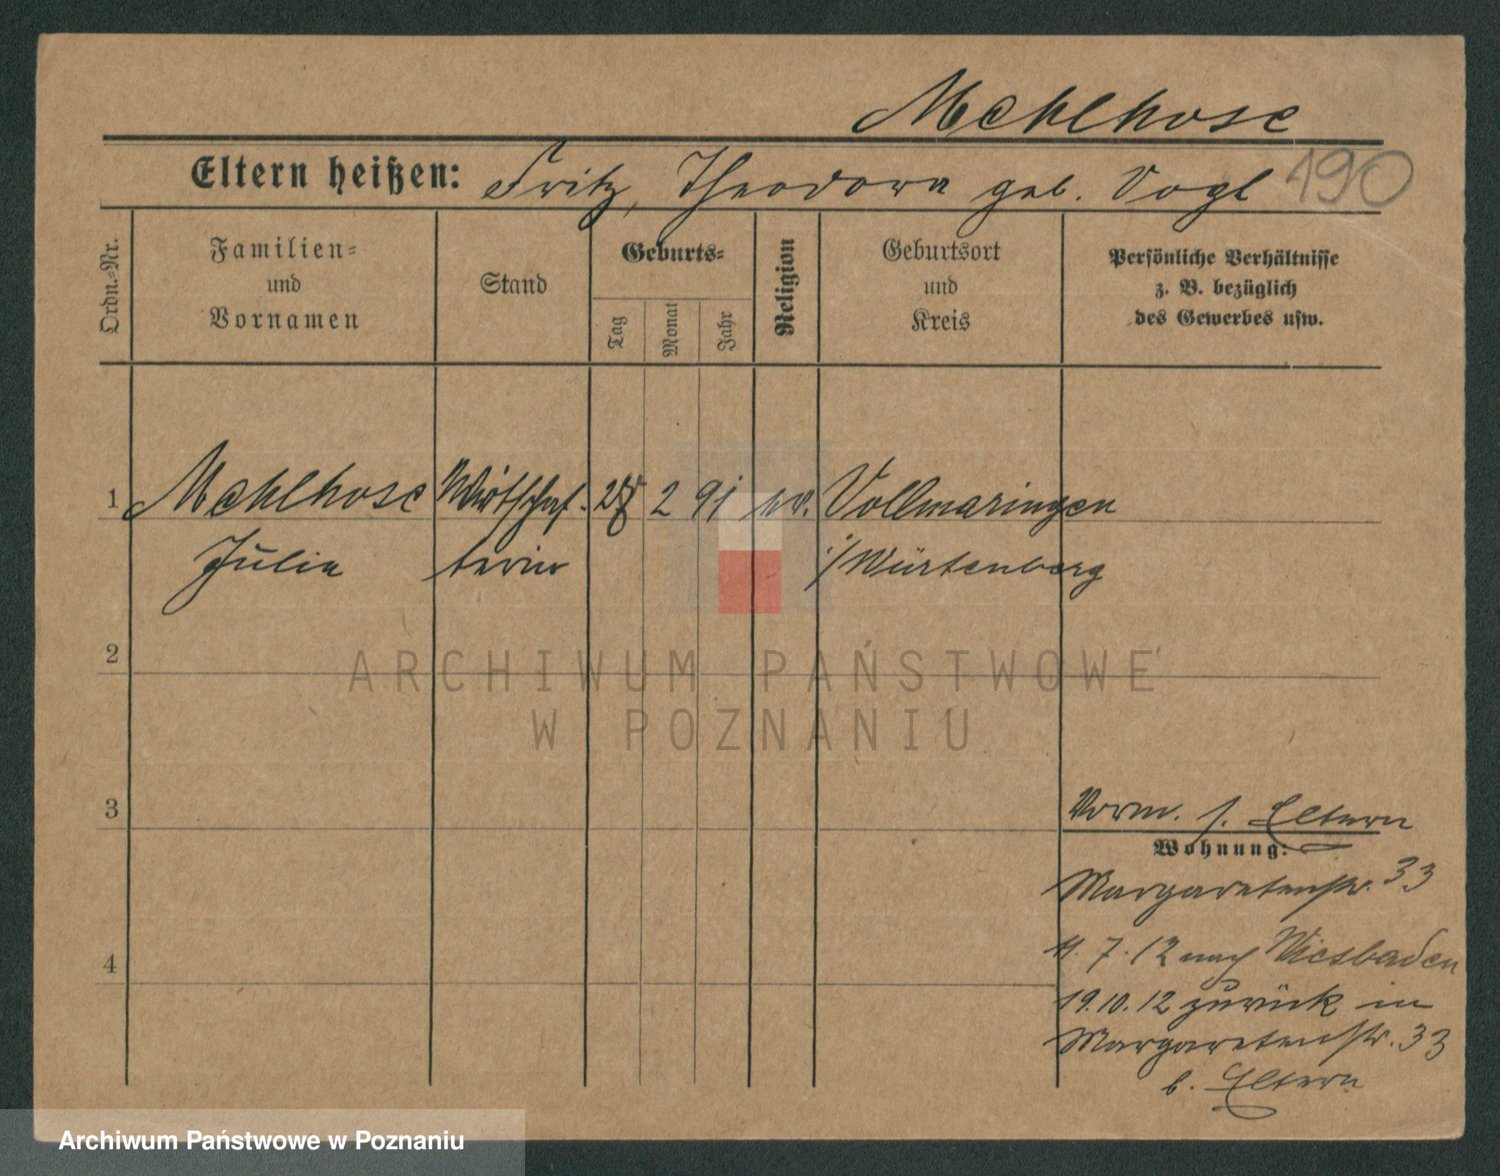 Mehlhose
Eltern heißen: Fritz, Theodora geb. Vogl 190
Ordn.-Nr.
Familien-
und
Vornamen
Stand
Geburts-
Tag
Monat
Jahr
Religion
Geburtsort
und
Kreis
Persönliche Verhältnisse
z. B. bezüglich
des Gewerbes usw.
1 Mehlhose Wirtschaf- 2 91 ev. Vollmaringen
Julia terin i/Würtenberg
2
ARCHIWUM PAŃSTWOWE
W POZNANIU
3
Vorm. s. Eltern
Wohnung:
Margaretenstr. 33
4
11.7.12 nach Wiesbaden
19.10.12 zurück in
Margaretenstr. 33
b. Eltern
Archiwum Państwowe w Poznaniu